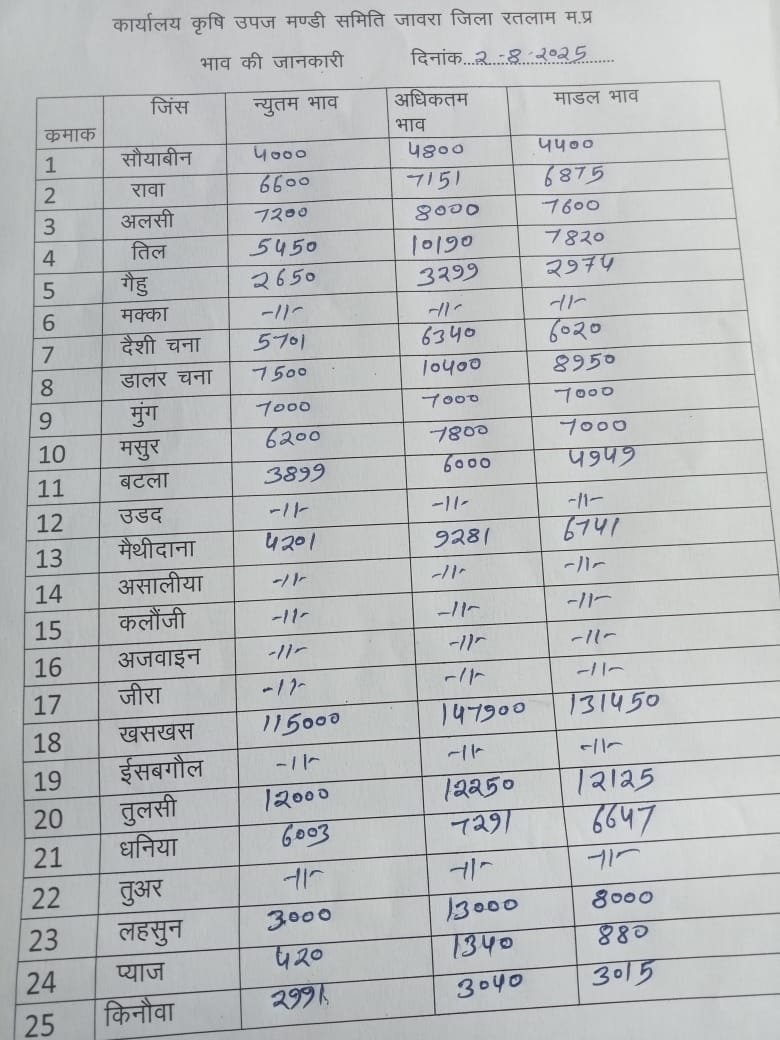 कार्यालय कृषि उपज मण्डी समिति जावरा जिला रतलाम म.प्र
भाव की जानकारी दिनांक...2-8-2025......
कमाक जिंस न्युतम भाव अधिकतम भाव माडल भाव
1 सौयाबीन 4000 4800 4400
2 रावा 6600 7151 6875
3 अलसी 7200 8000 7600
4 तिल 5450 10190 7820
5 गैहु 2650 3299 2974
6 मक्का -11- -11- -11-
7 दैशी चना 5701 6340 6020
8 डालर चना 7500 10400 8950
9 मुंग 7000 7000 7000
10 मसुर 6200 7800 7000
11 बटला 3899 6000 4949
12 उडद -11- -11- -11-
13 मैथीदाना 4201 9281 6741
14 असालीया -11- -11- -11-
15 कलौंजी -11- -11- -11-
16 अजवाइन -11- -11- -11-
17 जीरा -11- -11- -11-
18 खसखस 115000 147900 131450
19 ईसबगौल -11- -11- -11-
20 तुलसी 12000 12250 12125
21 धनिया 6003 7291 6647
22 तुअर -11- -11- -11-
23 लहसुन 3000 13000 8000
24 प्याज 420 1340 880
25 किनौवा 2991 3040 3015